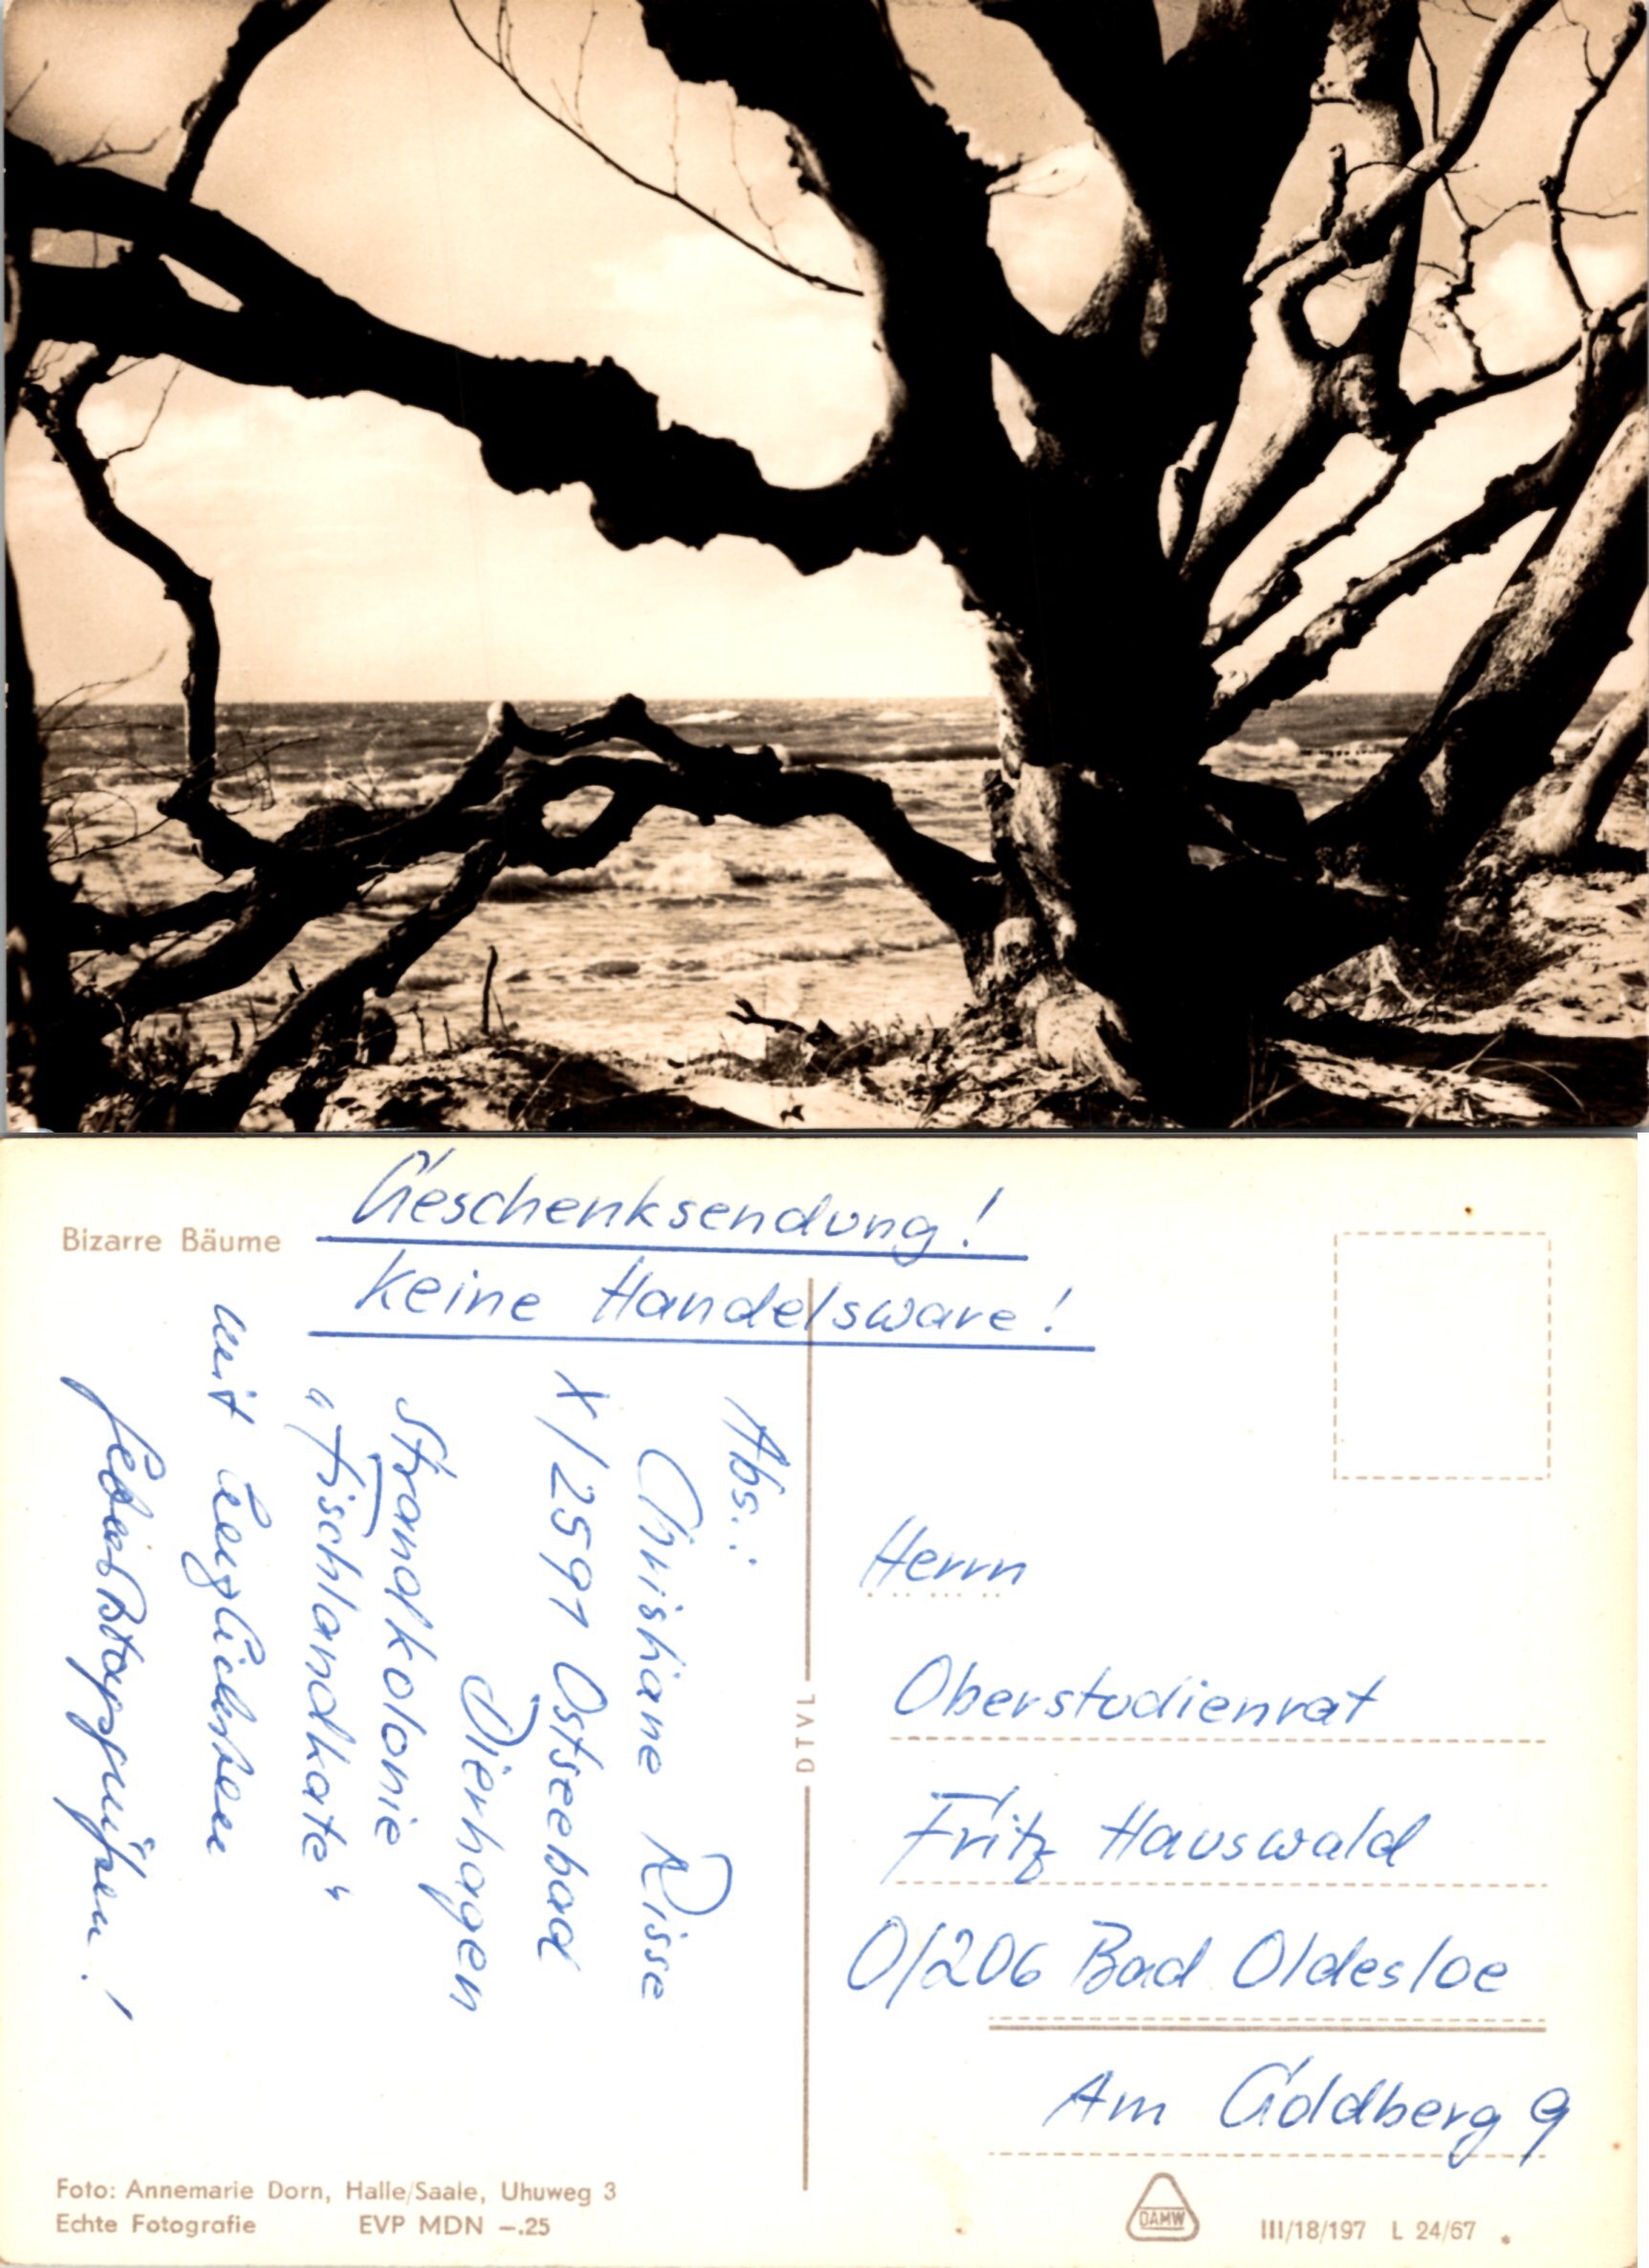 Bizarre Bäume
Geschenksendung!
keine Handelsware!
Abs.:
Christiane Risse
X/2591 Ostseebad
Dierhagen
Strandkolonie
"Fischlandkate"
mit herzlichsten
Geburtstagsgrüßen!
DTVL
Herrn
Oberstudienrat
Fritz Hauswald
O/206 Bad Oldesloe
Am Goldberg 9
Foto: Annemarie Dorn, Halle/Saale, Uhuweg 3
Echte Fotografie EVP MDN –.25
DAMW
III/18/197 L 24/67